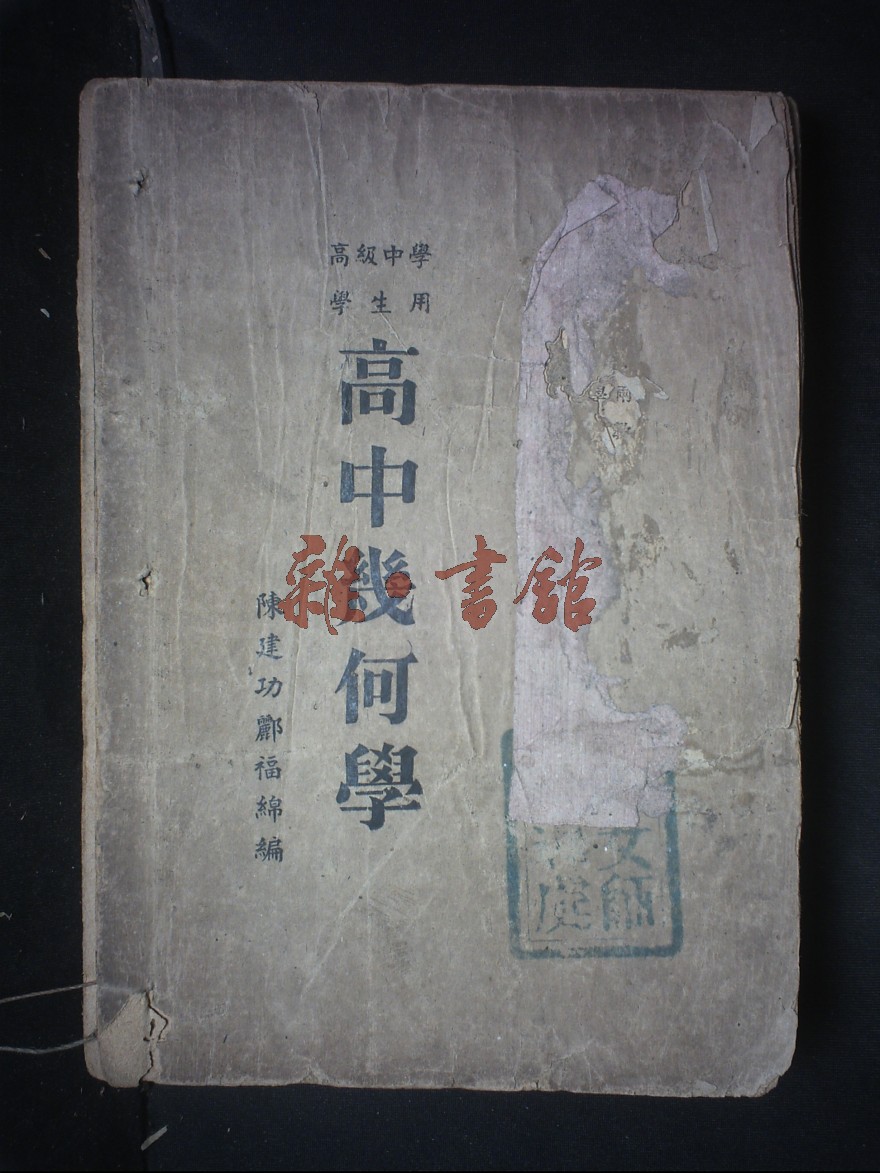 高級中學
學生用
高中幾何學
陳建功酈福綿編
雜·書館
文
師
處